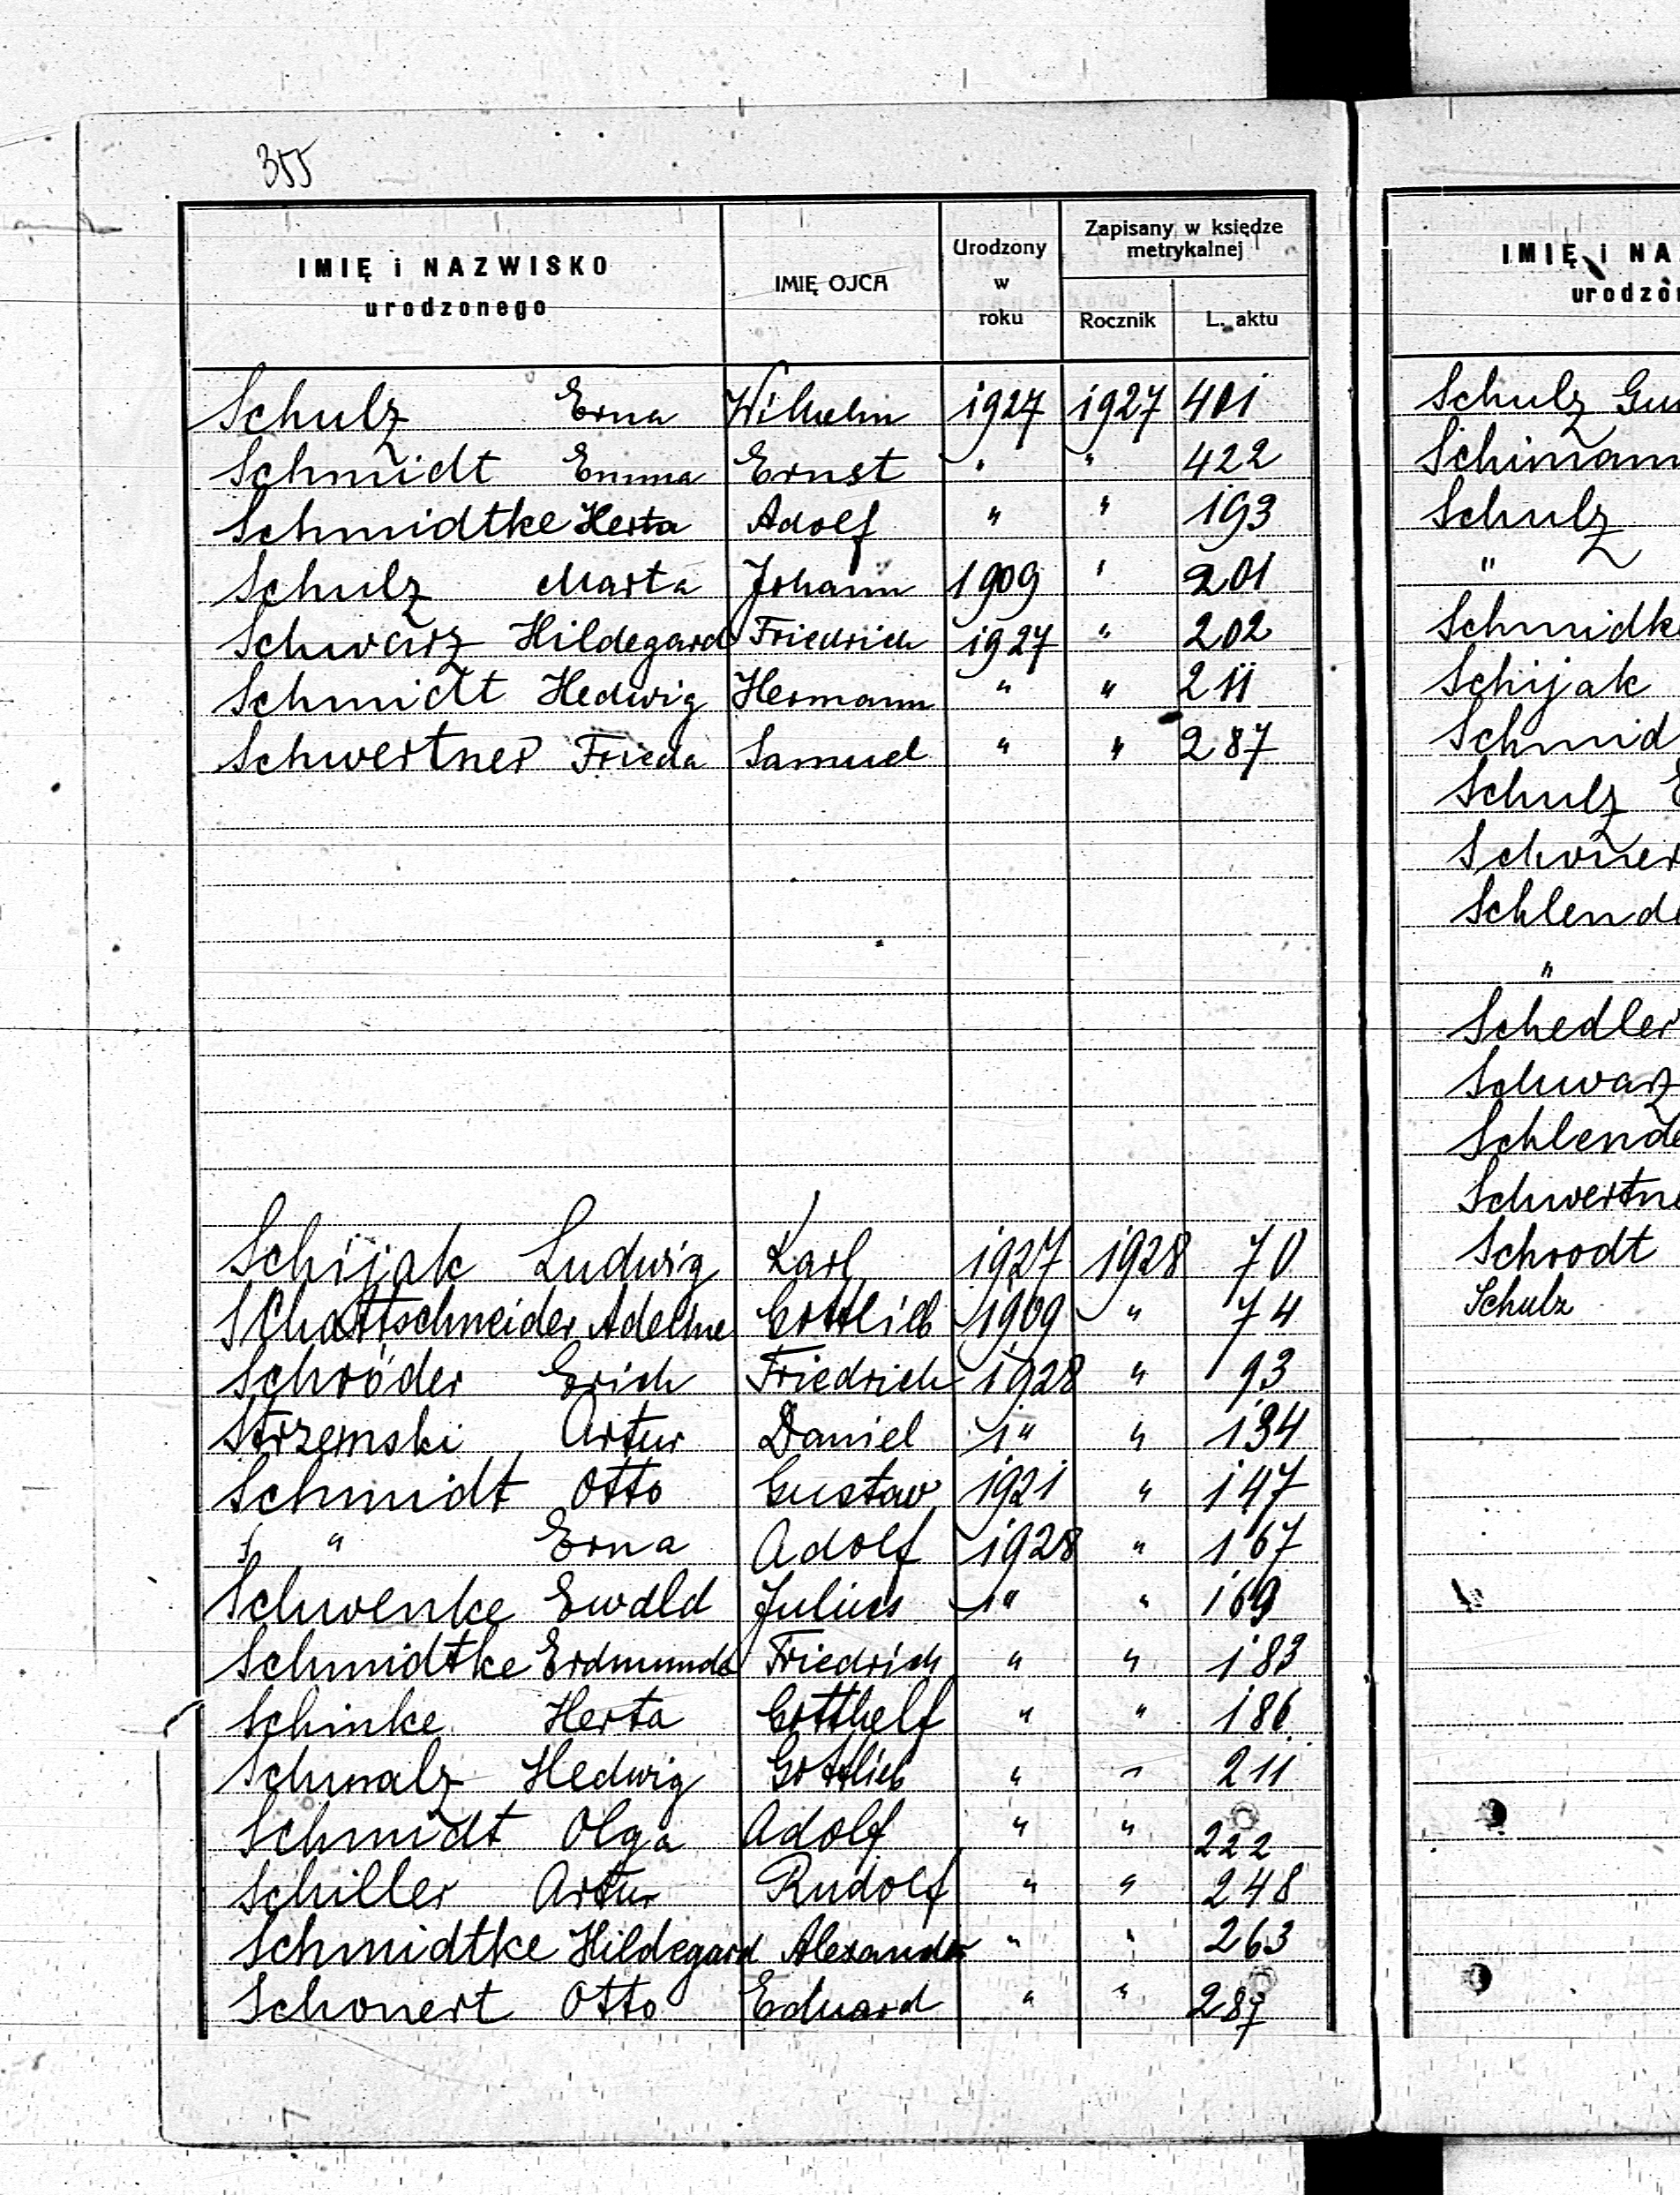 355
IMIĘ i NAZWISKO
urodzonego
IMIĘ OJCA
Urodzony
w
roku
Zapisany w księdze
metrykalnej
Rocznik
L. aktu
Schulz Erna Wilhelm 1927 1927 401
Schmidt Emma Ernst " " 422
Schmidtke Herta Adolf " " 193
Schulz Marta Johann 1909 " 201
Schwarz Hildegard Friedrich 1927 " 202
Schmidt Hedwig Hermann " " 211
Schwertner Frieda Samuel " " 287
Schijak Ludwig Karl 1927 1928 70
Schattschneider Adeline Gottlieb 1909 " 74
Schröder Erich Friedrich 1928 " 93
Strzemski Artur Daniel " " 134
Schmidt Otto Gustav 1921 " 147
" Erna Adolf 1928 " 167
Schwenke Ewald Julius " " 169
Schmidtke Erdmunda Friedrich " " 183
Schinke Herta Gotthelf " " 186
Schmalz Hedwig Gottlieb " " 211
Schmidt Olga Adolf " " 222
Schiller Artur Rudolf " " 248
Schmidtke Hildegard Alexander " " 263
Schonert Otto Eduard " " 287
IMIĘ i NA
urodzo
Schulz Gu
Schimann
Schulz
"
Schmidk
Schijak
Schmid
Schulz E
Schoner
Schlende
"
Schedler
Schwarz
Schlende
Schwertne
Schrodt
Schulz